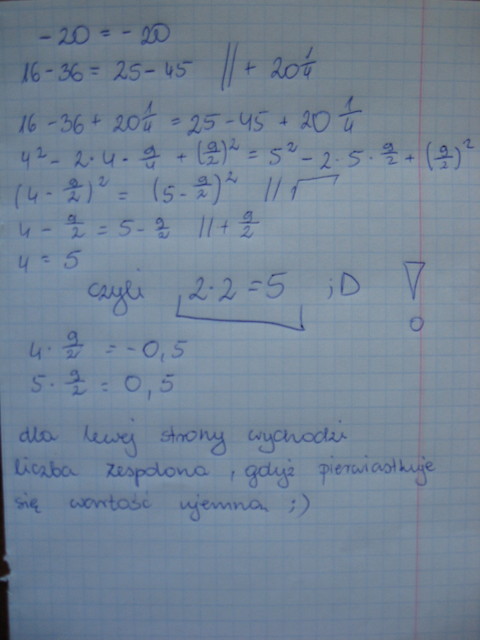 -20 = -20
16-36 = 25-45 || + 20 1/4
16-36 + 20 1/4 = 25-45 + 20 1/4
4² - 2·4·9/4 + (9/2)² = 5² - 2·5·9/2 + (9/2)²
(4 - 9/2)² = (5 - 9/2)² // √
4 - 9/2 = 5 - 9/2 || + 9/2
4 = 5
czyli 2·2 = 5 ;D !
4 · 9/2 = -0,5
5 · 9/2 = 0,5
dla lewej strony wychodzi
liczba zespolona, gdyż pierwiastkuje
się wartość ujemna ;)